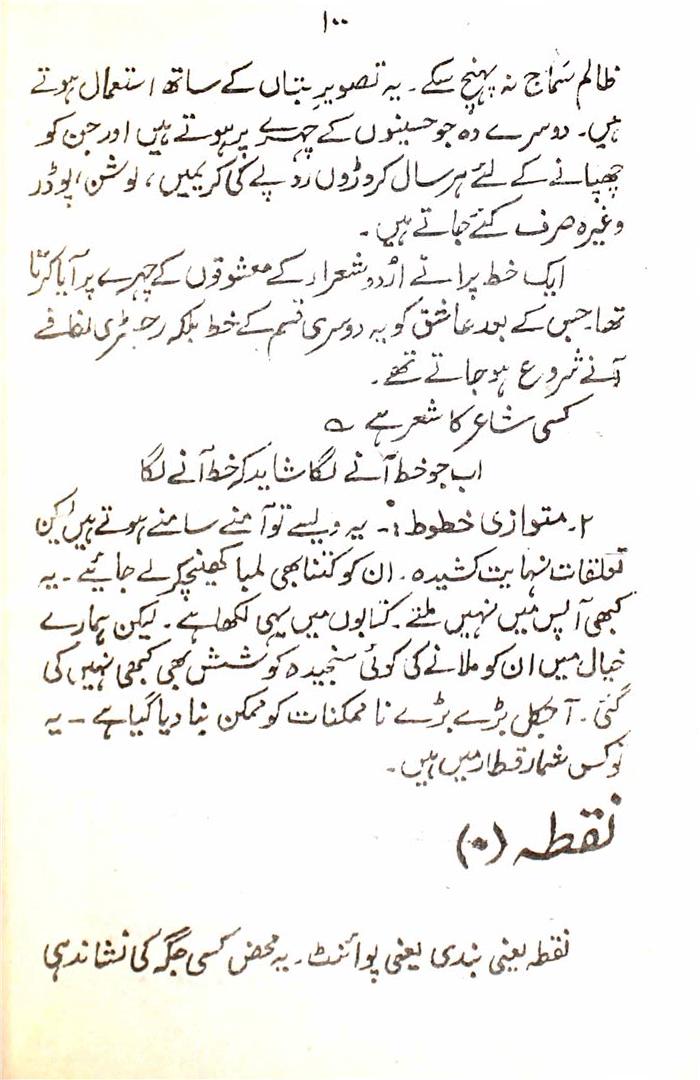 ۱۰۰
ظالم سماج نہ پہنچ سکے۔ یہ تصویرِ بتاں کے ساتھ استعمال ہوتے
ہیں۔ دوسرے وہ جو حسینوں کے چہرے پر ہوتے ہیں اور جن کو
چھپانے کے لئے ہر سال کروڑوں روپے کی کریمیں، لوشن، پوڈر
وغیرہ صرف کئے جاتے ہیں۔
ایک خط پرانے اردو شعراء کے معشوقوں کے چہرے پر آیا کرتا
تھا۔ جس کے بعد عاشق کو یہ دوسری قسم کے خط بلکہ رجسٹری لفافے
آنے شروع ہو جاتے تھے۔
کسی شاعر کا شعر ہے ؎
اب جو خط آنے لگا شاید کہ خط آنے لگا
۲۔ متوازی خطوط :۔ یہ ویسے تو آمنے سامنے ہوتے ہیں لیکن
تعلقات نہایت کشیدہ۔ ان کو کتنا بھی لمبا کھینچ کر لے جائیے۔ یہ
کبھی آپس میں نہیں ملتے۔ کتابوں میں یہی لکھا ہے۔ لیکن ہمارے
خیال میں ان کو ملانے کی کوئی سنجیدہ کوشش بھی کبھی نہیں کی
گئی۔ آجکل بڑے بڑے ناممکنات کو ممکن بنا دیا گیا ہے۔ یہ
تو کس شمار قطار میں ہیں۔
نقطہ (۰)
نقطہ یعنی بندی یعنی پوائنٹ۔ یہ محض کسی جگہ کی نشاندہی